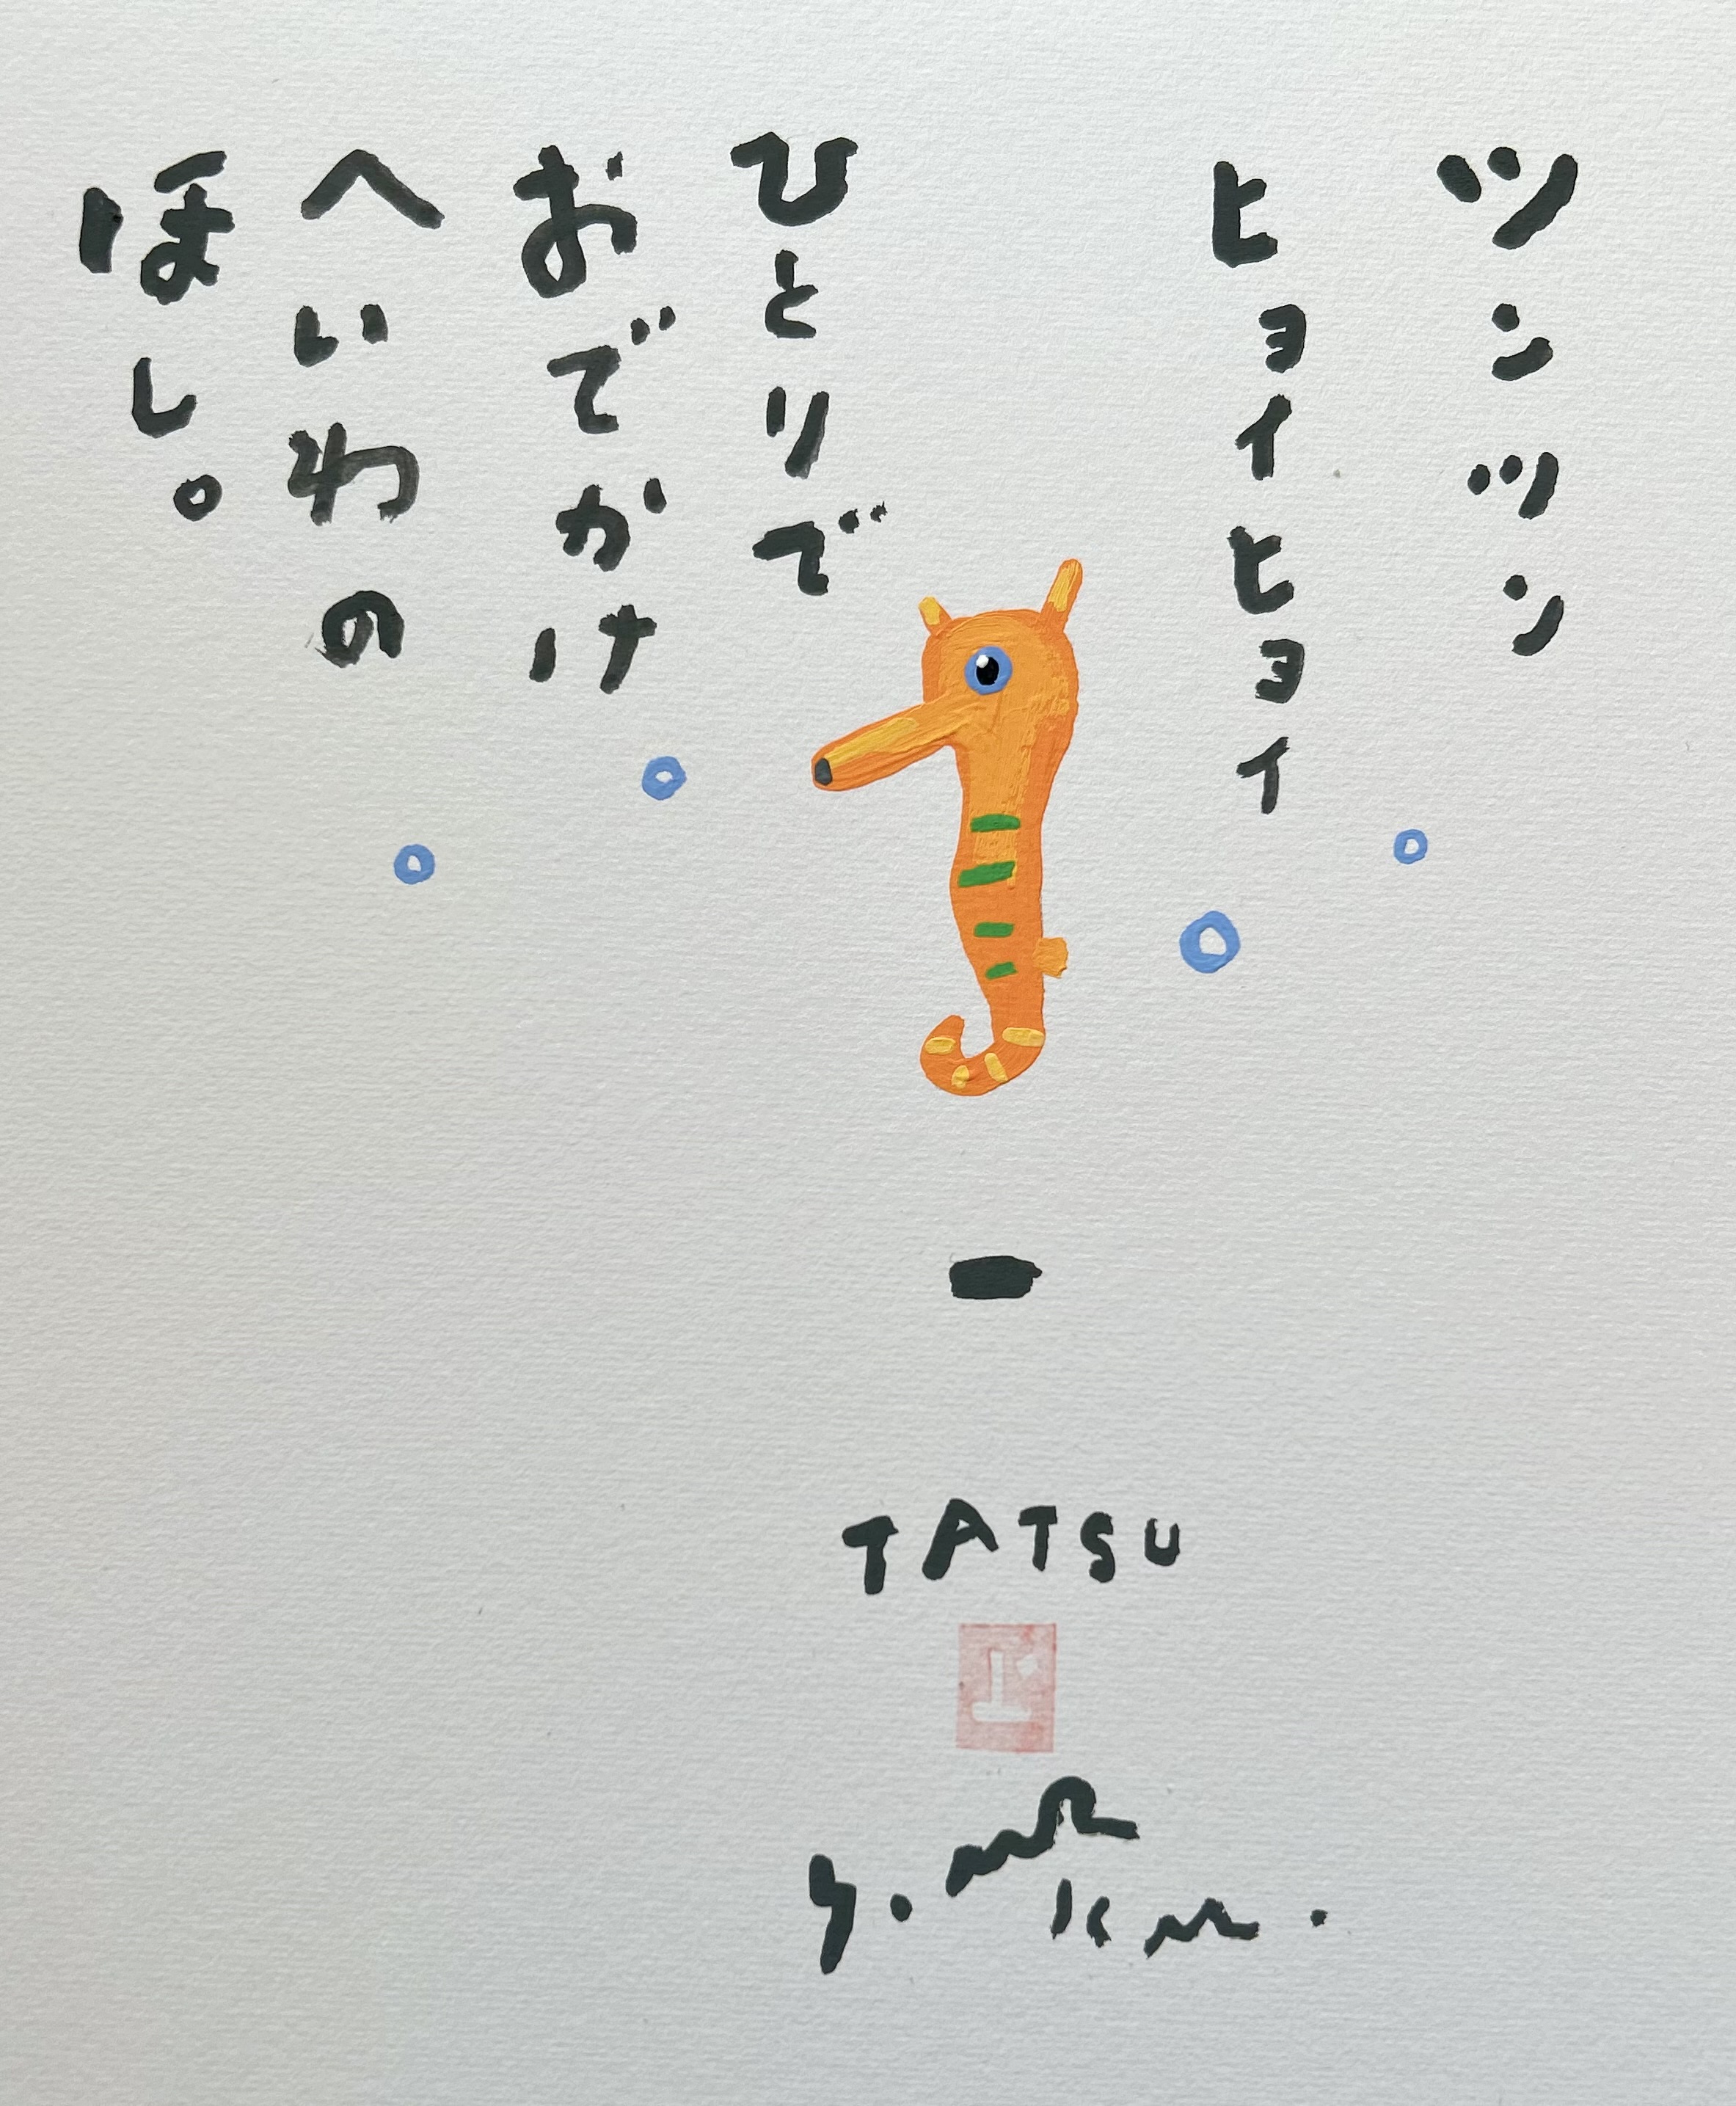 ツンツン
ヒョイヒョイ
ひとりで
おでかけ
へいわの
ほし。
TATSU